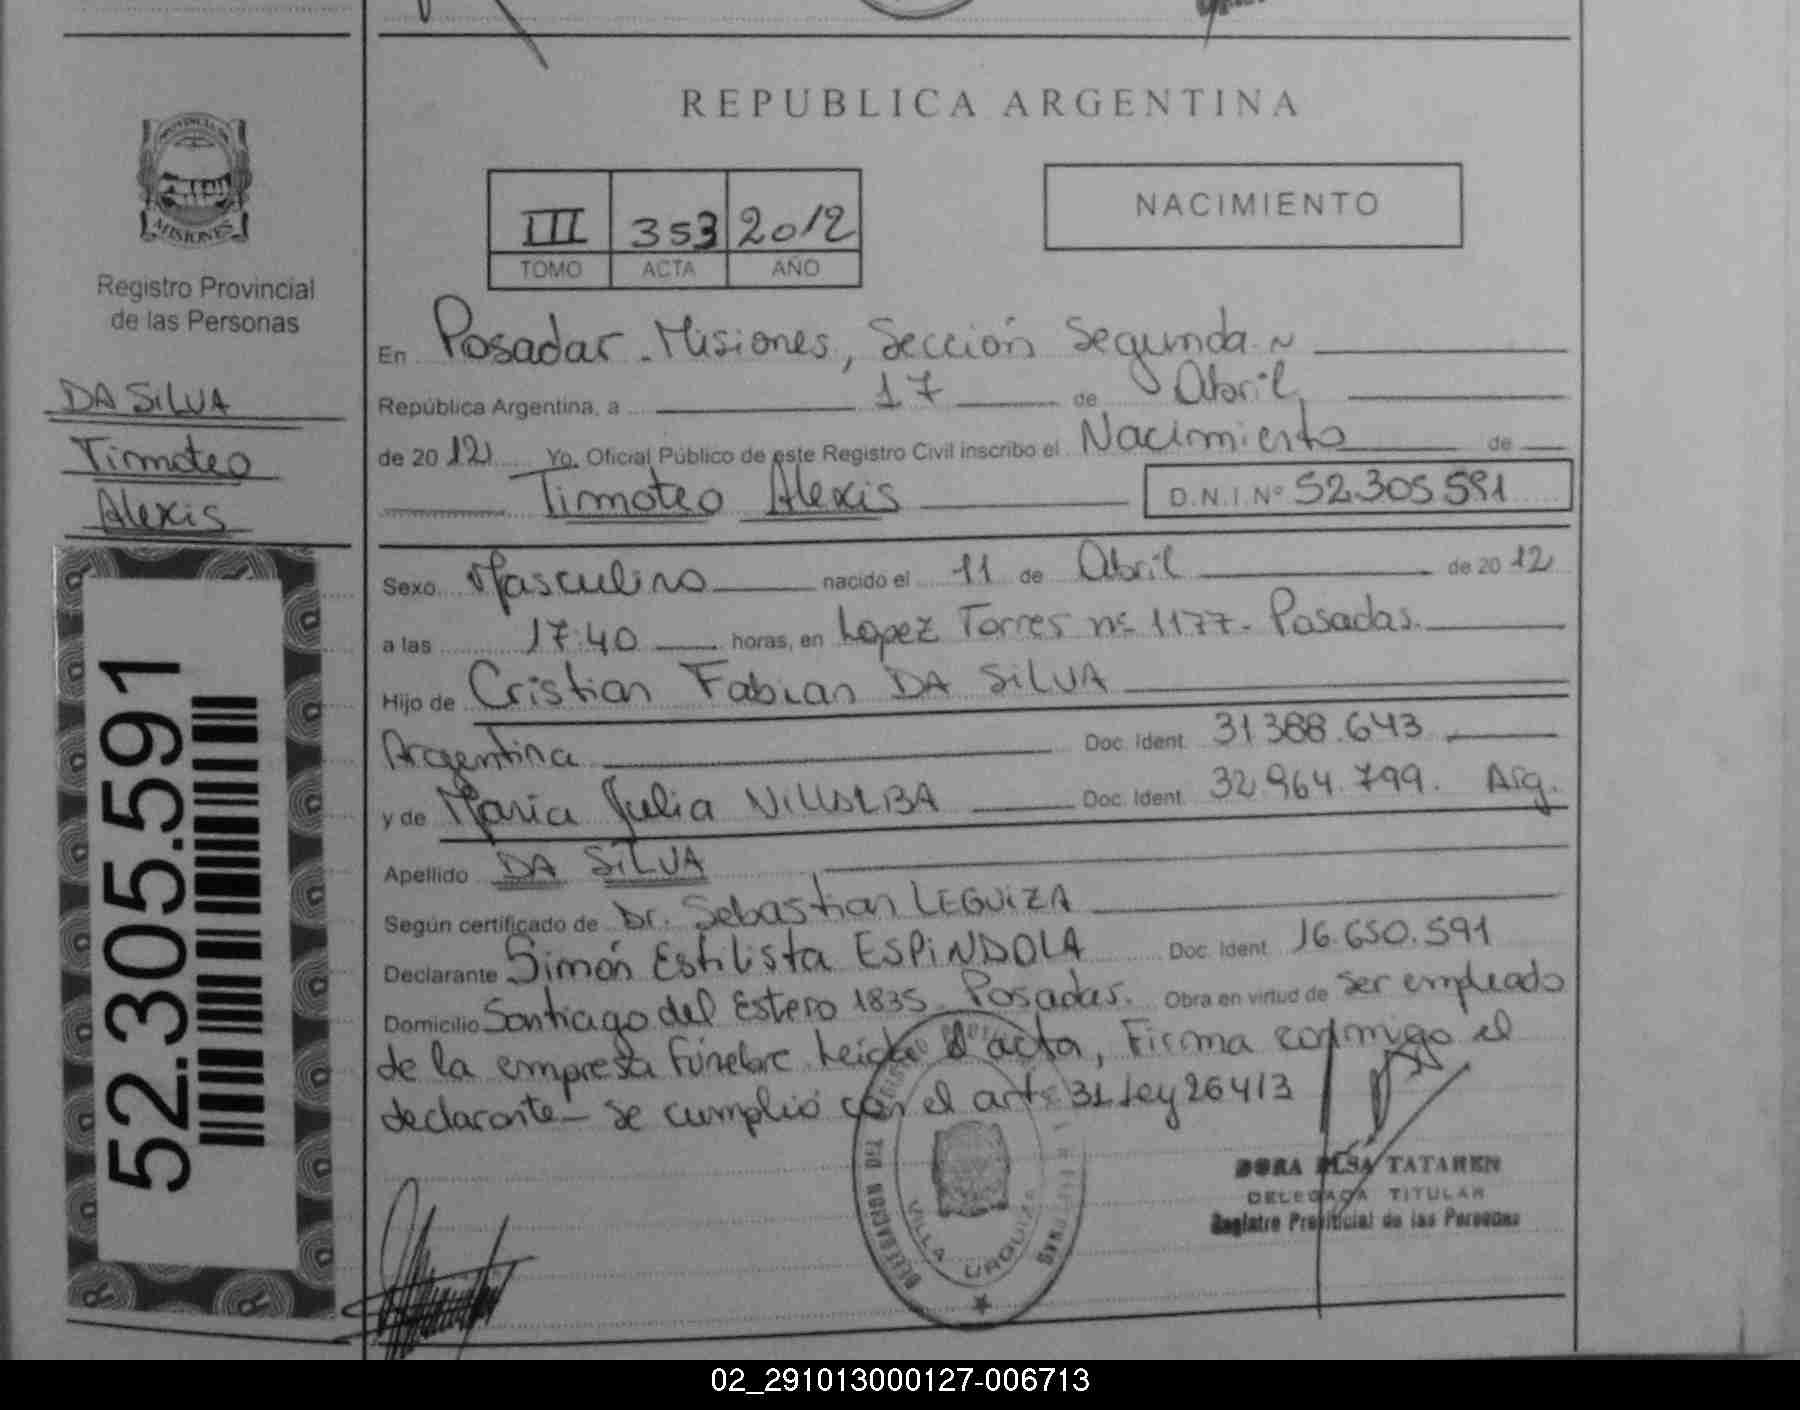 REPUBLICA ARGENTINA
PROVINCIA DE
MISIONES
Registro Provincial
de las Personas
DA SILVA
Timoteo
Alexis
52.305.591
III 353 2012
TOMO ACTA AÑO
NACIMIENTO
En Posadas - Misiones, Sección Segunda
República Argentina, a 17 de Abril
de 2012 Yo, Oficial Público de este Registro Civil inscribo el Nacimiento de
Timoteo Alexis D.N.I. Nº 52.305.591
Sexo Masculino nacido el 11 de Abril de 2012
a las 17:40 horas, en Lopez Torres nº 1177 - Posadas.
Hijo de Cristian Fabian DA SILVA
Argentina Doc. Ident. 31388.643
y de María Julia VILLALBA Doc. Ident. 32.964.799. Arg.
Apellido DA SILVA
Según certificado de Dr. Sebastian LEGUIZA
Declarante Simón Estilista ESPINDOLA Doc. Ident. 16.650.591
Domicilio Santiago del Estero 1835 Posadas. Obra en virtud de ser empleado
de la empresa Fúnebre. Leida el acta, Firma conmigo el
declarante - Se cumplió con el art. 31 Ley 26413
DELEGACION DEL
VILLA URQUIZA
DORA ELSA TATAREN
DELEGADA TITULAR
Registro Provincial de las Personas
02_291013000127-006713